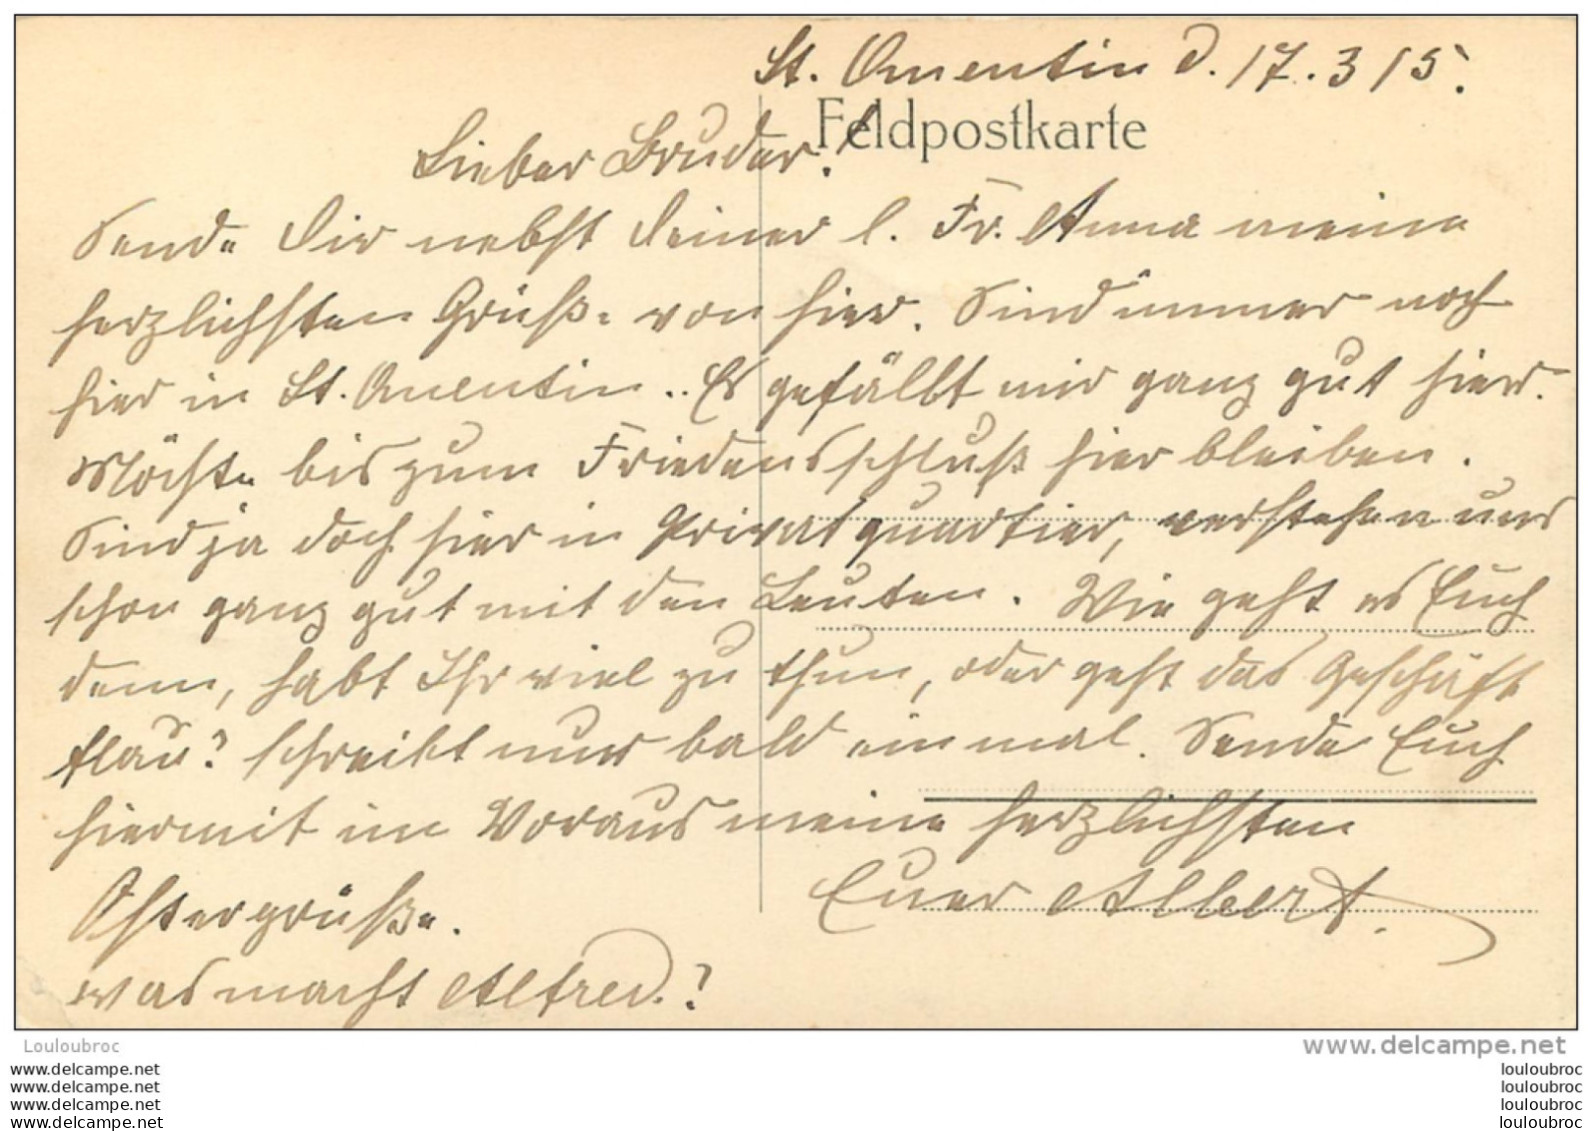 St. Quentin d. 17.3 15.
Feldpostkarte
Lieber Bruder!
Sende Dir nebst Deiner l. Fr. Anna meine
herzlichsten Grüße von hier. Sind immer noch
hier in St. Quentin.. Es gefällt mir ganz gut hier.
Möchte bis zum Friedensschluß hier bleiben.
Sind ja doch hier in Privatquartier, verstehen uns
schon ganz gut mit den Leuten. Wie geht es Euch
denn, habt Ihr viel zu thun, oder geht das Geschäft
flau? schreibt nur bald einmal. Sende Euch
hiermit im Voraus meine herzlichsten
Ostergrüße.
Euer Albert.
was macht Alfred.?
Louloubroc
www.delcampe.net
www.delcampe.net
www.delcampe.net
www.delcampe.net
www.delcampe.net
louloubroc
louloubroc
louloubroc
louloubroc